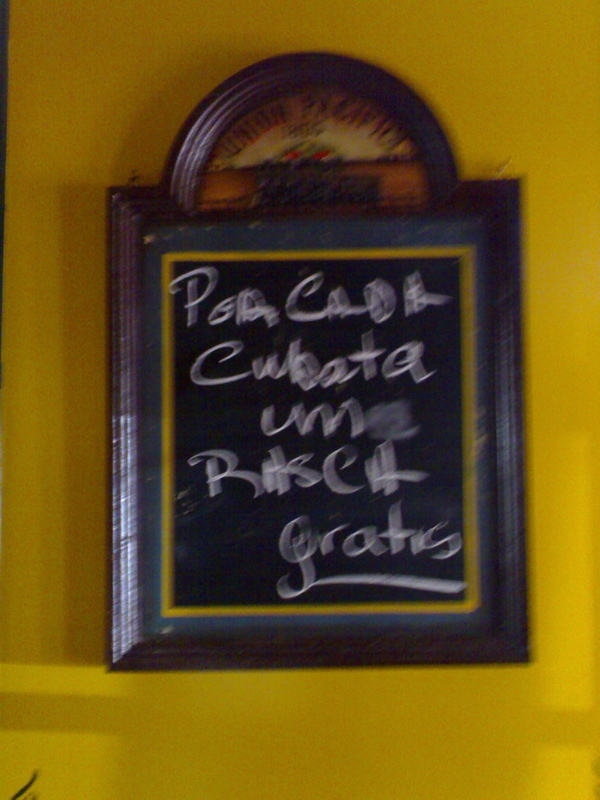 POR CADA
Cubata
una
RASCA
gratis